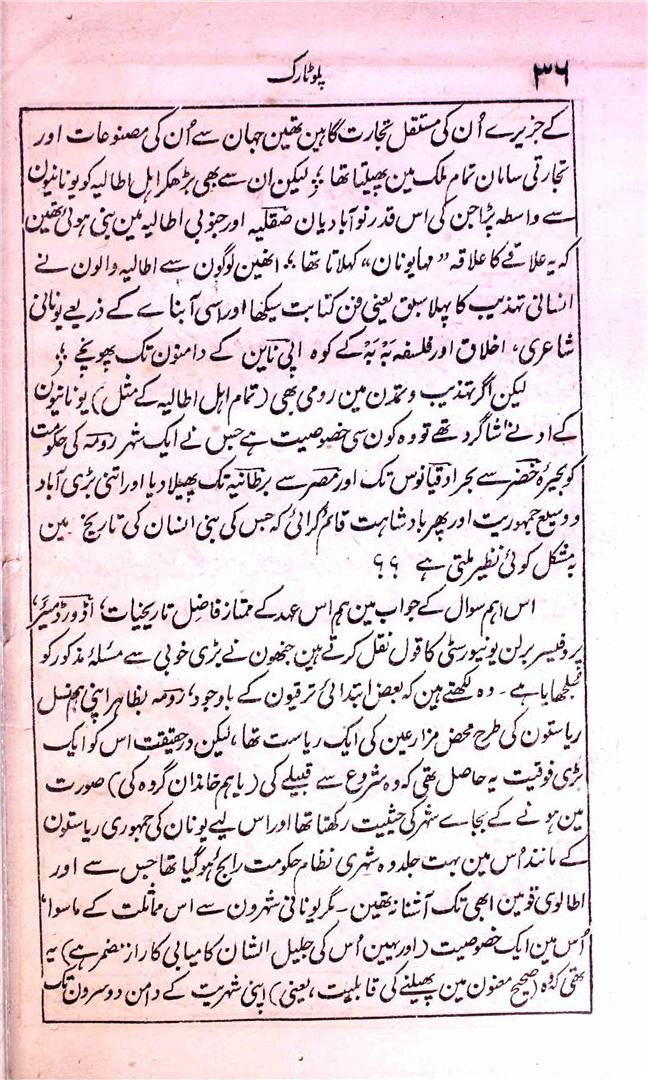 ۳۶
پلوٹارک
کے جزیرے اُن کی مستقل تجارت گاہین تھین جہان سے اُن کی مصنوعات اور
تجارتی سامان تمام ملک مین پھیلتا تھا ؛ لیکن ان سے بھی بڑھکر اہل اطالیہ کو یونانیون
سے واسطہ پڑا جن کی اس قدر نو آبادیان صقلیہ اور جنوبی اطالیہ مین بنی ہوئی تھین
کہ یہ علاقے کا علاقہ "مہا یونان" کہلاتا تھا ؛ انھین لوگون سے اطالیہ والون نے
انسانی تہذیب کا پہلا سبق یعنی فن کتابت سیکھا اور اسی آبناے کے ذریعے یونانی
شاعری، اخلاق اور فلسفہ بَہ بَہ کے کوہ اپی ناین کے دامنون تک پھونچے ؛
لیکن اگر تہذیب و تمدن مین رومی بھی (تمام اہل اطالیہ کے مثل) یونانیون
کے ادنےٰ شاگرد تھے تو وہ کون سی خصوصیت ہے جس نے ایک شہر رومہ کی حکومت
کو بحیرۂ خضر سے بحر ادقیانوس تک اور مصر سے برطانیہ تک پھیلا دیا اور اتنی بڑی آباد
و وسیع جمہوریت اور پھر بادشاہت قائم کرائی کہ جس کی بنی انسان کی تاریخ مین
بہ مشکل کوئی نظیر ملتی ہے ؟؟
اس اہم سوال کے جواب مین ہم اس عہد کے ممتاز فاضل تاریخیات، اڈورڈ میئر،
پروفیسر برلن یونیورسٹی کا قول نقل کرتے ہین جنھون نے بڑی خوبی سے مسئلۂ مذکور کو
سلجھایا ہے ۔ وہ لکھتے ہین کہ بعض ابتدائی ترقیون کے باوجود، رومہ بظاہر اپنی ہم نسل
ریاستون کی طرح محض مزارعین کی ایک ریاست تھا، لیکن درحقیقت اس کو ایک
بڑی فوقیت یہ حاصل تھی کہ وہ شروع سے قبیلے کی (یا ہم خاندان گروہ کی) صورت
مین ہونے کے بجاے شہر کی حیثیت رکھتا تھا اور اس لیے یونان کی جمہوری ریاستون
کے مانند اُس مین بہت جلد وہ شہری نظام حکومت رایج ہو گیا تھا جس سے اور
اطالوی قومین ابھی تک آشنا نہ تھین ۔ مگر یونانی شہرون سے اس مماثلت کے ماسوا،
اُس مین ایک خصوصیت (اور یہین اُس کی جلیل الشان کامیابی کا راز مضمر ہے) یہ
تھی کہ وہ (صحیح معنون مین پھیلنے کی قابلیت، یعنی) اپنی شہریت کے دامن دوسرون تک